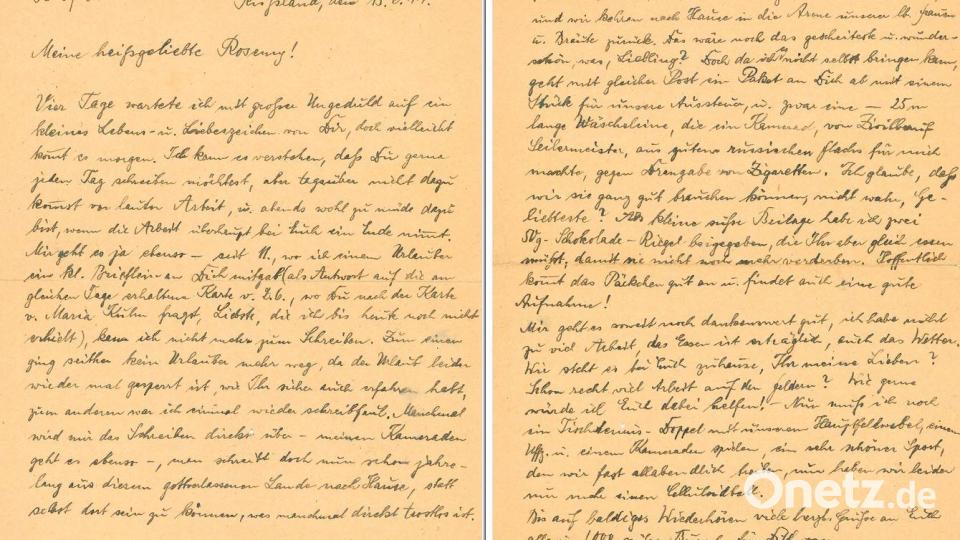 Rußland, den 15.6.44.
Meine heißgeliebte Rosemy!
Vier Tage wartete ich mit großer Ungeduld auf ein
kleines Lebens- u. Liebeszeichen von Dir, doch vielleicht
kommt es morgen. Ich kann es verstehen, daß Du gerne
jeden Tag schreiben möchtest, aber tagsüber nicht dazu
kommst vor lauter Arbeit, u. abends wohl zu müde dazu
bist, wenn die Arbeit überhaupt bei Euch ein Ende nimmt.
Mir geht es ja ebenso – seit 11., wo ich einem Urlauber
ein kl. Brieflein an Dich mitgab (als Antwort auf die am
gleichen Tage erhaltene Karte v. 2.6., wo Du nach der Karte
v. Maria Kulm fragst, Liebste, die ich bis heute noch nicht
erhielt), kam ich nicht mehr zum Schreiben. Zum einen
ging seither kein Urlauber mehr weg, da der Urlaub leider
wieder mal gesperrt ist, wie Ihr sicher auch erfahren habt,
zum anderen war ich einmal wieder schreibfaul. Manchmal
wird mir das Schreiben direkt über – meinen Kameraden
geht es ebenso –, man schreibt doch nun schon jahre-
lang aus diesem gottverlassenen Lande nach Hause, statt
selbst dort sein zu können, was manchmal direkt trostlos ist.
und wir kehren nach Hause in die Arme unserer lb. Frauen
u. Bräute zurück. Das wäre noch das gescheiteste u. wunder-
schön, was, Liebling? Doch da ich's nicht selbst bringen kann,
geht mit gleicher Post ein Paket an Dich ab mit einem
Stück für unsere Aussteuer, u. zwar eine – 25 m
lange Wäscheleine, die ein Kamerad, von Zivilberuf
Seilermeister, aus gutem russischen Flachs für mich
machte, gegen Drangabe von Zigaretten. Ich glaube, daß
wir sie ganz gut brauchen können, nicht wahr, Ge-
liebteste? Als kleine süße Beilage habe ich zwei
50g-Schokolade-Riegel beigegeben, die Ihr aber gleich essen
müßt, damit sie nicht noch mehr verderben. Hoffentlich
kommt das Päckchen gut an u. findet auch eine gute
Aufnahme!
Mir geht es soweit noch dankenswert gut, ich habe nicht
zu viel Arbeit, das Essen ist erträglich, auch das Wetter.
Wie steht es bei Euch zuhause, Ihr meine Lieben?
Schon recht viel Arbeit auf den Feldern? Wie gerne
würde ich Euch dabei helfen. – Nun muß ich noch
ein Tischtennis-Doppel mit unserem Hauptfeldwebel, einem
Uffz. u. einem Kameraden spielen, ein sehr schöner Sport,
den wir fast allabendlich treiben, nun haben wir leider
nur mehr einen Celluloidball.
Bis auf baldiges Wiederhören viele herzl. Grüße an Euch
Onetz.de